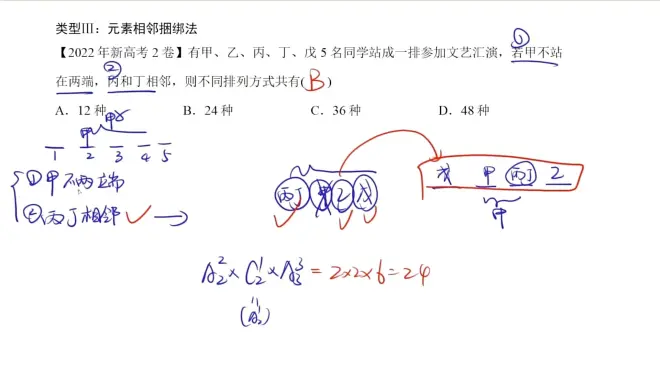 类型Ⅲ：元素相邻捆绑法
【2022年新高考2卷】有甲、乙、丙、丁、戊5名同学站成一排参加文艺汇演，若甲不站
①
在两端，丙和丁相邻，则不同排列方式共有(B)
②
A．12种 B．24种 C．36种 D．48种
甲
甲
1 2 3 4 5
①甲不两端
②丙丁相邻 ✓ →
丙丁 甲 乙 戊
戊 甲 丙丁 乙
甲
A₂²×C₂¹×A₃³=2×2×6=24
(A₂¹)